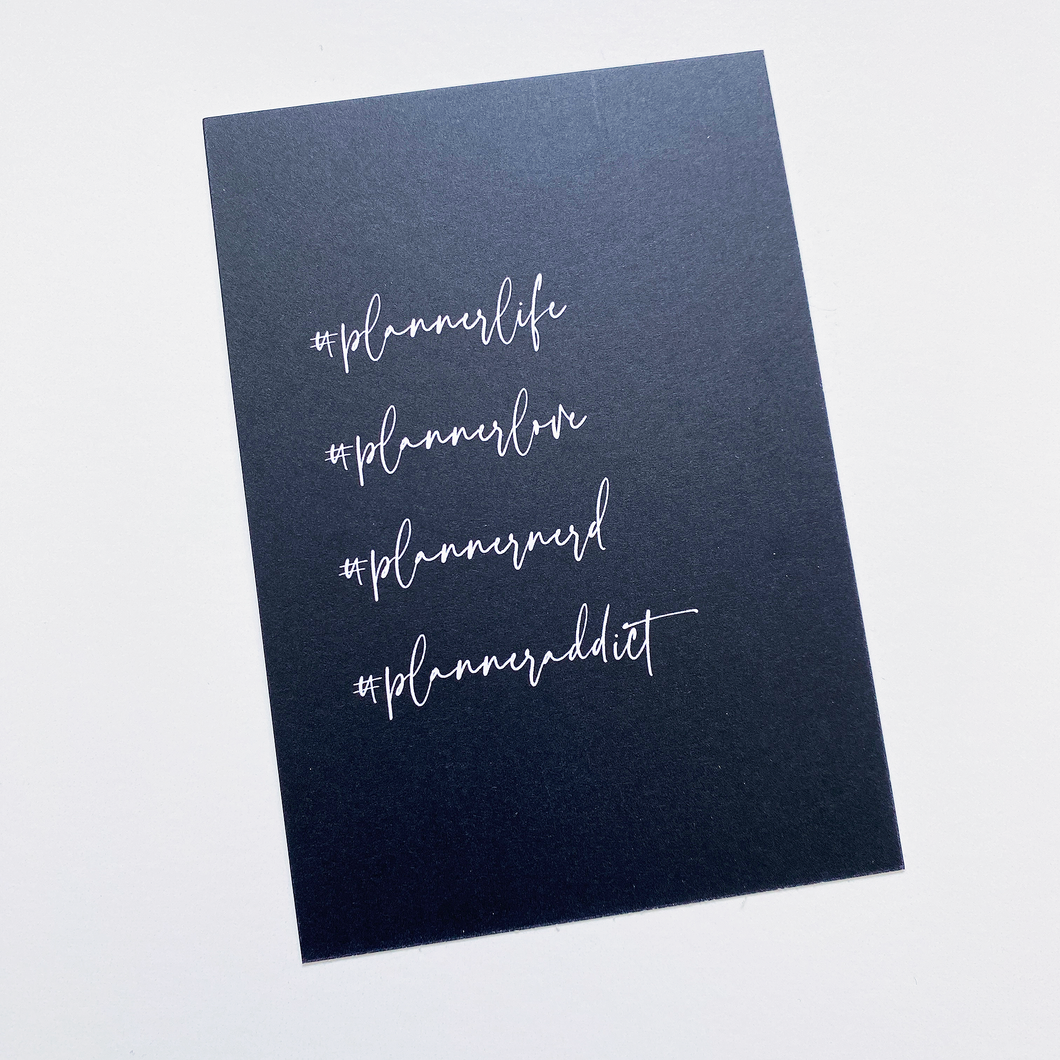 #plannerlife
#plannerlove
#plannernerd
#planneraddict